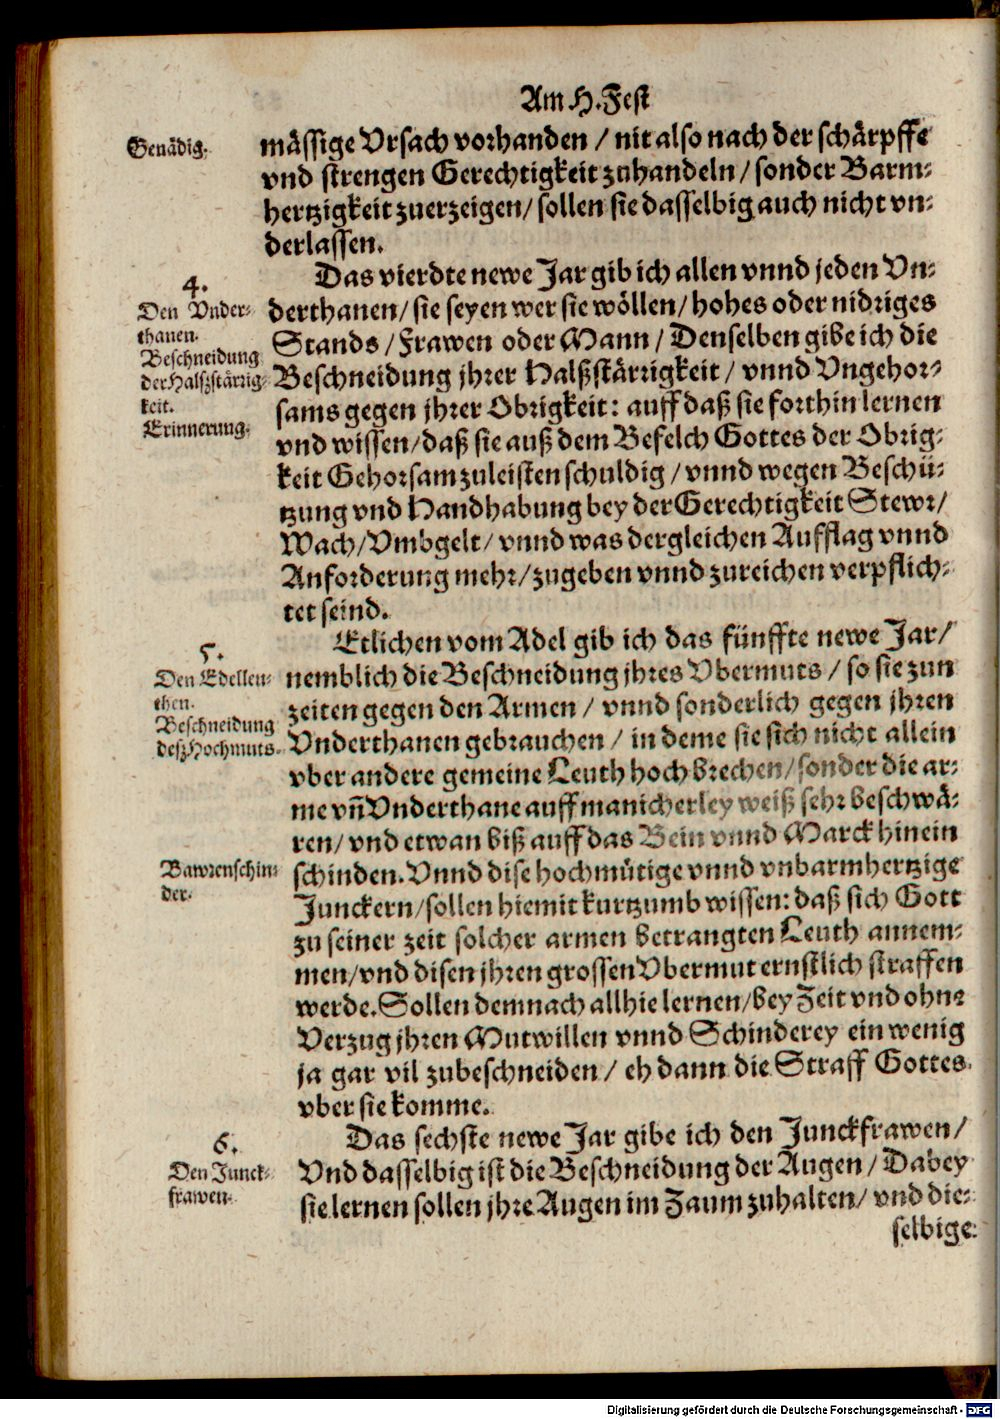 Am H. Fest
Genädig.
mässige Vrsach vorhanden / nit also nach der schärpffe
vnd strengen Gerechtigkeit zuhandeln / sonder Barm-
hertzigkeit zuerzeigen / sollen sie dasselbig auch nicht vn-
derlassen.
4.
Den Vnder-
thanen.
Beschneidung
der Halßstärrig-
keit.
Erinnerung.
Das vierdte newe Jar gib ich allen vnnd jeden Vn-
derthanen / sie seyen wer sie wöllen / hohes oder nidriges
Stands / Frawen oder Mann / Denselben gibe ich die
Beschneidung jhrer Halßstärrigkeit / vnnd Vngehor-
sams gegen jhrer Obrigkeit: auff daß sie forthin lernen
vnd wissen / daß sie auß dem Befelch Gottes der Obrig-
keit Gehorsam zuleisten schuldig / vnnd wegen Beschü-
tzung vnd Handhabung bey der Gerechtigkeit Stewr /
Wach / Vmbgelt / vnnd was dergleichen Aufflag vnnd
Anforderung mehr / zugeben vnnd zureichen verpflich-
tet seind.
5.
Den Edelleu-
then.
Beschneidung
deß Hochmuts.
Etlichen vom Adel gib ich das fünffte newe Jar /
nemblich die Beschneidung jhres Vbermuts / so sie zun
zeiten gegen den Armen / vnnd sonderlich gegen jhren
Vnderthanen gebrauchen / in deme sie sich nicht allein
vber andere gemeine Leuth hoch brechen / sonder die ar-
me vn̄ Vnderthane auff manicherley weiß sehr beschwä-
ren / vnd etwan biß auff das Bein vnnd Marck hinein
Bawrenschin-
der.
schinden. Vnnd dise hochmütige vnnd vnbarmhertzige
Junckern / sollen hiemit kurtzumb wissen: daß sich Gott
zu seiner zeit solcher armen betrangten Leuth annem-
men / vnd disen jhren grossen Vbermut ernstlich straffen
werde. Sollen demnach allhie lernen / bey Zeit vnd ohne
Verzug jhren Mutwillen vnnd Schinderey ein wenig
ja gar vil zubeschneiden / eh dann die Straff Gottes
vber sie komme.
6.
Den Junck-
frawen.
Das sechste newe Jar gibe ich den Junckfrawen /
Vnd dasselbig ist die Beschneidung der Augen / Dabey
sie lernen sollen jhre Augen im Zaum zuhalten / vnd die-
selbige
Digitalisierung gefördert durch die Deutsche Forschungsgemeinschaft - DFG